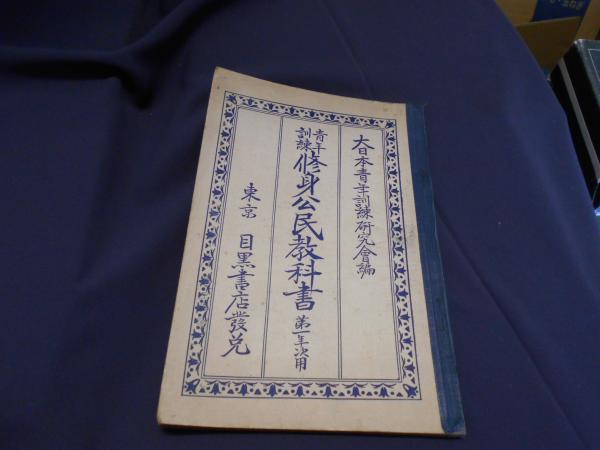 大日本青年訓練研究會編
青年訓練
修身公民教科書 第一年次用
東京 目黒書店發兌